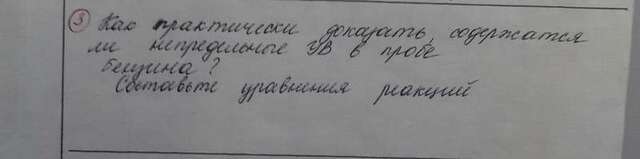 3 Как практически доказать, содержатся
ли непредельные УВ в пробе
бензина?
Составьте уравнения реакций